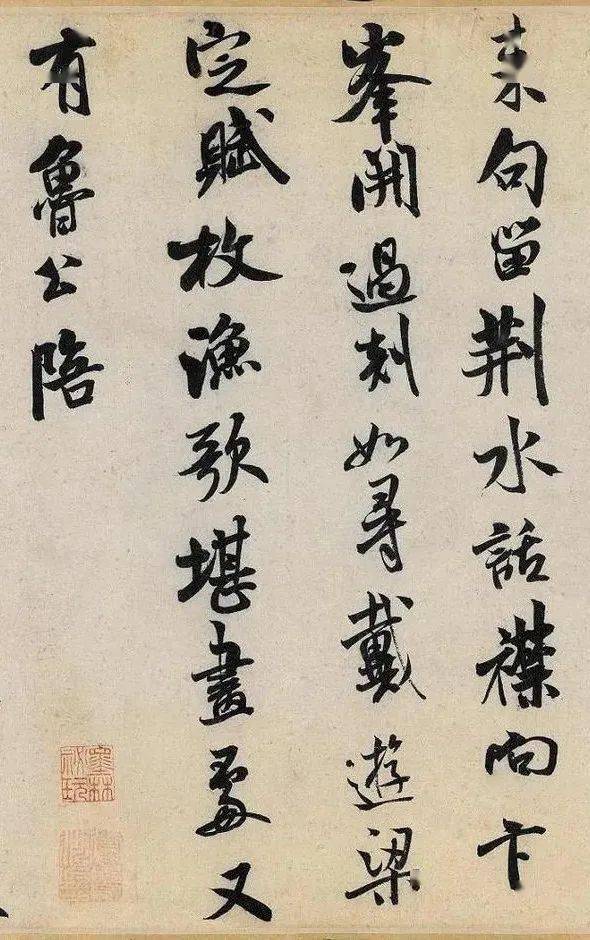 来句留荊水話襟向卞
峯開過剡如尋戴遊梁
定賦枚漁歌堪畫處又
有魯公陪
墨林秘玩